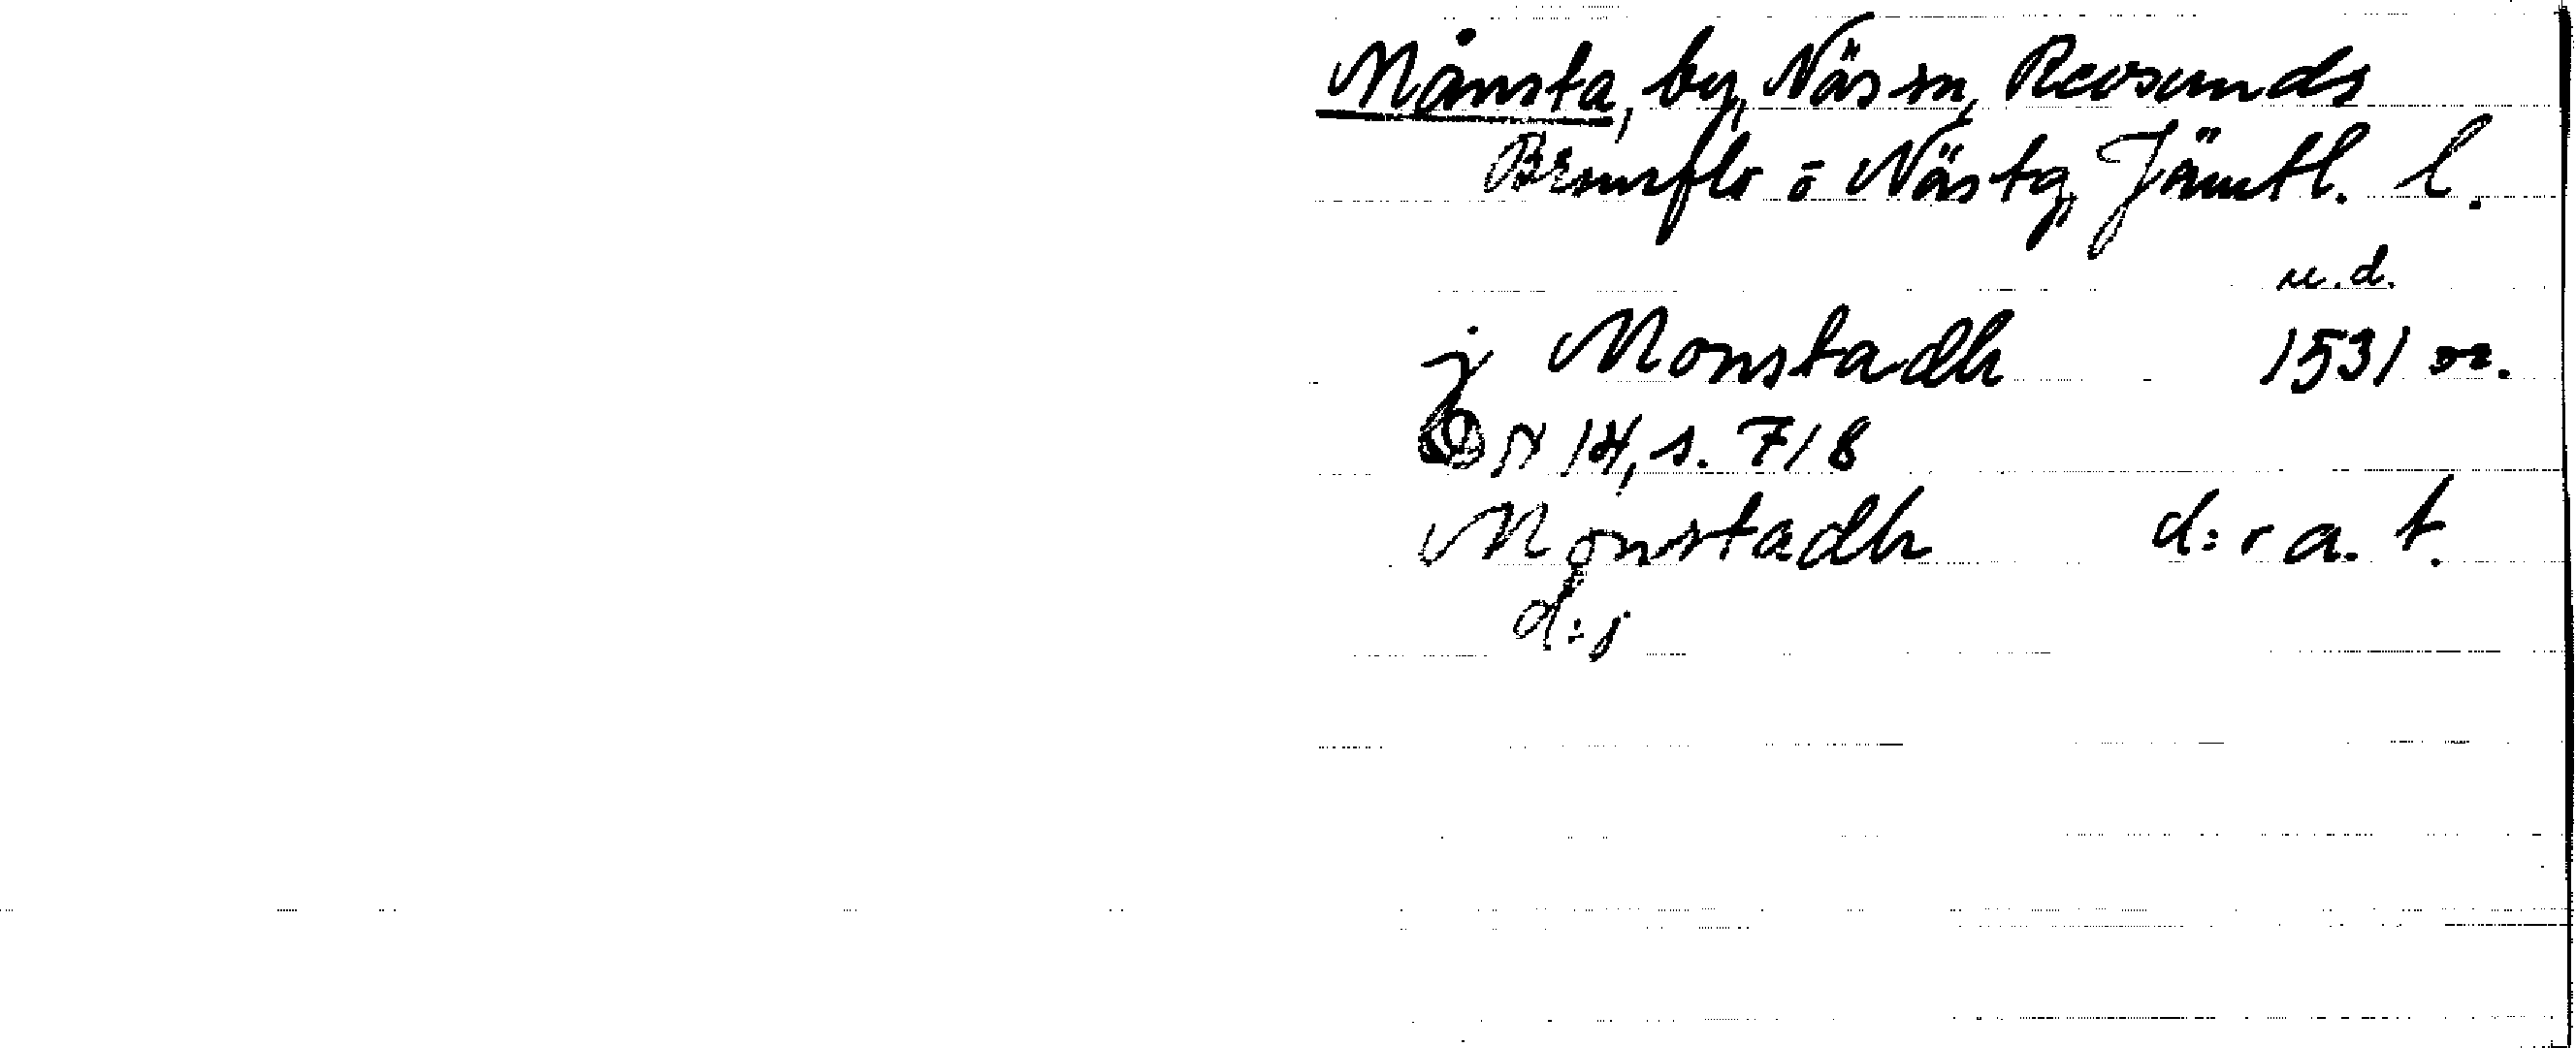 Månsta, by, Näs sn, Revsunds
Brunflo o Näs tg, Jämtl. l.
u.d.
j Monstadh 1531 or.
N 14, s. 718
Monstadh d:r a. t.
d:s